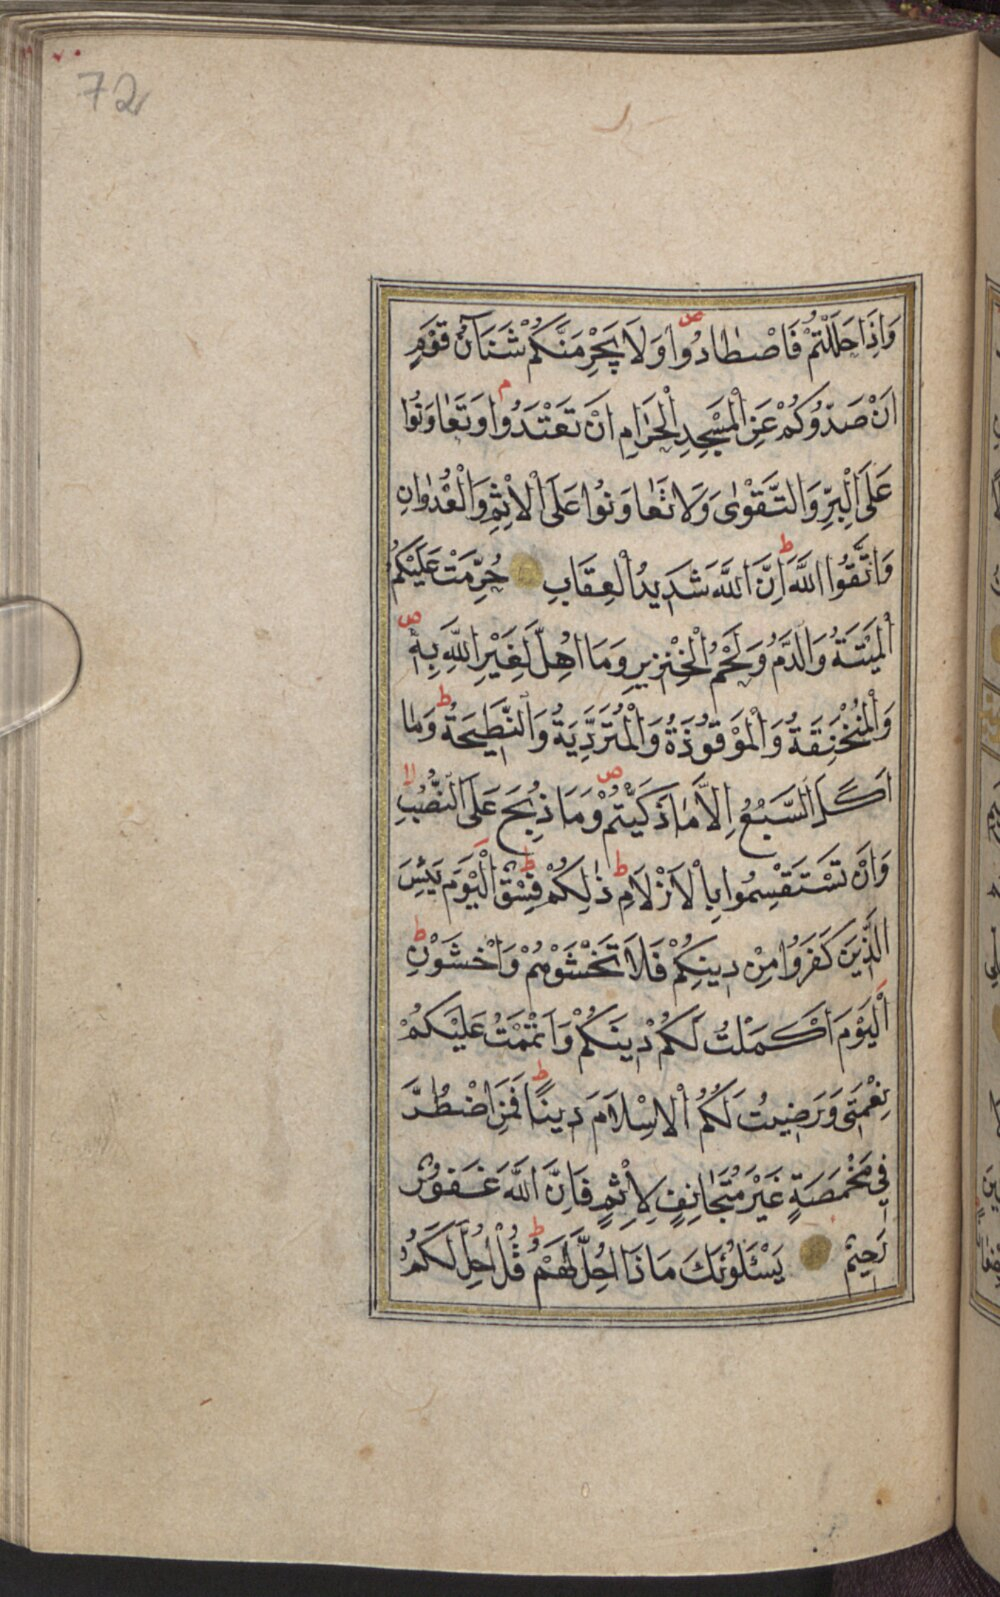 72
وَاِذَا حَلَلْتُمْ فَاصْطَادُوا وَلَا يَجْرِمَنَّكُمْ شَنَآنُ قَوْمٍ
اَنْ صَدُّوكُمْ عَنِ الْمَسْجِدِ الْحَرَامِ اَنْ تَعْتَدُوا وَتَعَاوَنُوا
عَلَى الْبِرِّ وَالتَّقْوٰى وَلَا تَعَاوَنُوا عَلَى الْاِثْمِ وَالْعُدْوَانِ
وَاتَّقُوا اللَّهَ اِنَّ اللَّهَ شَدِيدُ الْعِقَابِ حُرِّمَتْ عَلَيْكُمُ
الْمَيْتَةُ وَالدَّمُ وَلَحْمُ الْخِنْزِيرِ وَمَا اُهِلَّ لِغَيْرِ اللَّهِ بِهِ
وَالْمُنْخَنِقَةُ وَالْمَوْقُوذَةُ وَالْمُتَرَدِّيَةُ وَالنَّطِيحَةُ وَمَا
اَكَلَ السَّبُعُ اِلَّا مَا ذَكَّيْتُمْ وَمَا ذُبِحَ عَلَى النُّصُبِ
وَاَنْ تَسْتَقْسِمُوا بِالْاَزْلَامِ ذٰلِكُمْ فِسْقٌ الْيَوْمَ يَئِسَ
الَّذِينَ كَفَرُوا مِنْ دِينِكُمْ فَلَا تَخْشَوْهُمْ وَاخْشَوْنِ
الْيَوْمَ اَكْمَلْتُ لَكُمْ دِينَكُمْ وَاَتْمَمْتُ عَلَيْكُمْ
نِعْمَتِى وَرَضِيتُ لَكُمُ الْاِسْلَامَ دِينًا فَمَنِ اضْطُرَّ
فِى مَخْمَصَةٍ غَيْرَ مُتَجَانِفٍ لِاِثْمٍ فَاِنَّ اللَّهَ غَفُورٌ
رَحِيمٌ يَسْئَلُونَكَ مَاذَا اُحِلَّ لَهُمْ قُلْ اُحِلَّ لَكُمُ